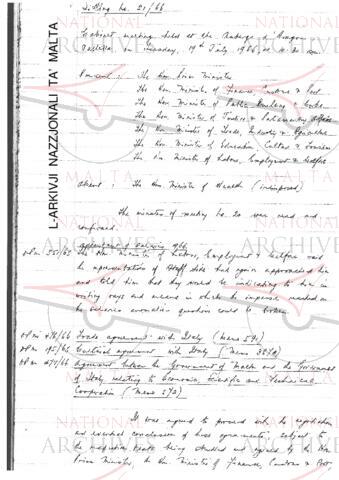 L-ARKIVJI NAZZJONALI TA' MALTA
NATIONAL ARCHIVES
Sitting No. 21/66
Cabinet meeting held at the Auberge d'Aragon
Valletta on Tuesday, 19th July 1966 at
Present : The Hon. Prime Minister
The Hon. Minister of Finance, Customs & Port
The Hon. Minister of Public Building & Works
The Hon. Minister of Justice & Parliamentary Affairs
The Hon. Minister of Trade, Industry & Agriculture
The Hon. Minister of Education, Culture & Tourism
The Hon. Minister of Labour, Employment & Welfare
Absent : The Hon. Minister of Health (indisposed)
The minutes of meeting No. 20 were read and
confirmed.
The Hon. Minister of Labour, Employment & Welfare said
the representatives of Staff Side had again approached him
and told him that they would be indicating to him in
writing ways and means in which the impasse reached on
the salaries question could be broken.
OPM 478/66 Trade agreement with Italy (Memo 571)
OPM 195/66 Cultural agreement with Italy (Memo
OPM 477/66 Agreement between the Government of Malta and the Government
of Italy relating to Economic, Scientific and Technical
Cooperation (Memo 572)
It was agreed to proceed with the negotiation
and eventual conclusion of these agreements, subject to
the being studied and agreed by the Hon.
Prime Minister, the Hon. Minister of Finance, Customs & Port,